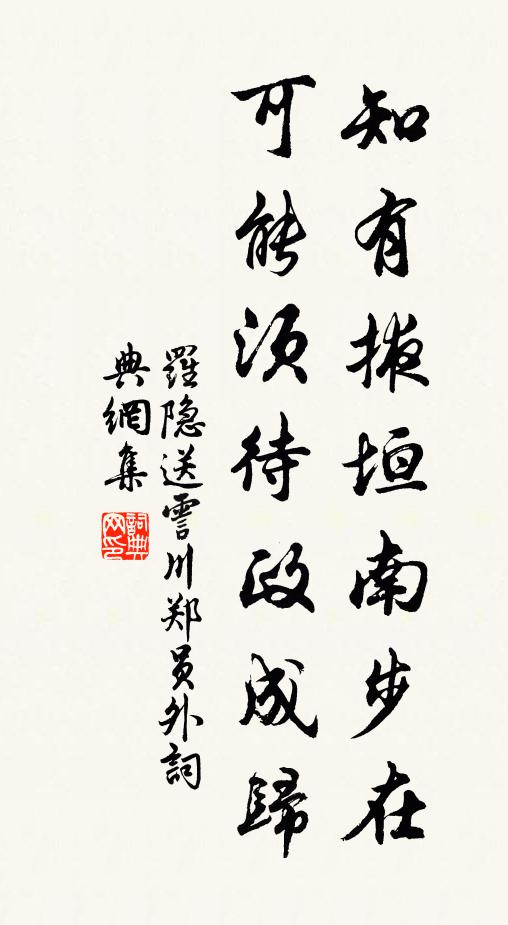 知有掖垣南步在
可能须待政成歸
羅隐送霅川郑员外詞
典網集
詞典網印